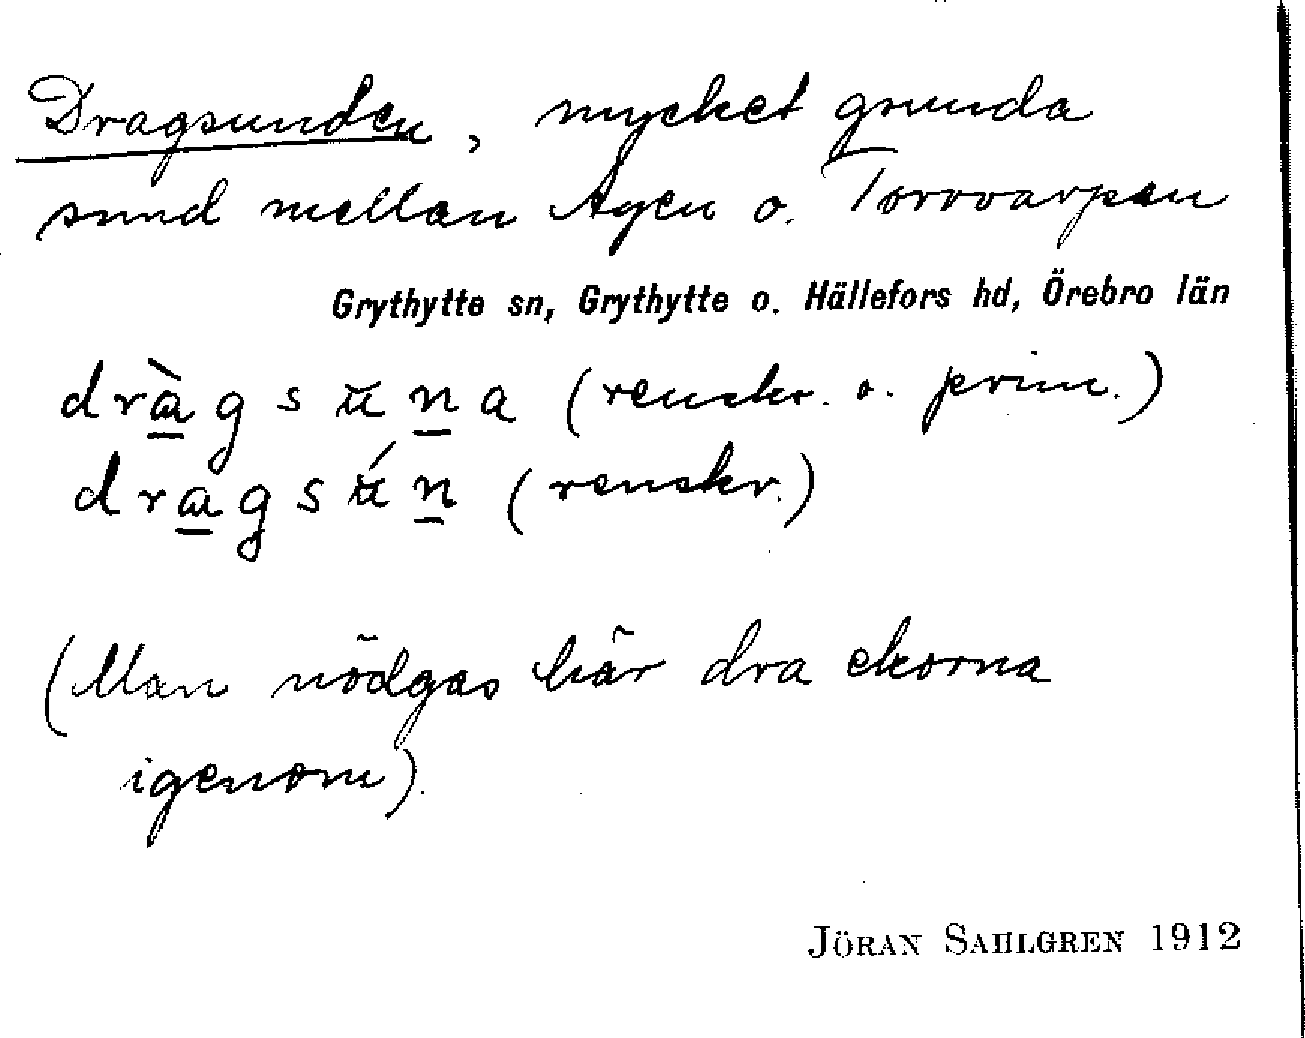 Dragsunden, mycket grunda
sund mellan Agen o. Torrvarpen
Grythytte sn, Grythytte o. Hällefors hd, Örebro län
dràgsuna (renskr. o. prim.)
dragsún (renskr.)
(Man nödgas här dra ekorna
igenom).
JÖRAN SAHLGREN 1912